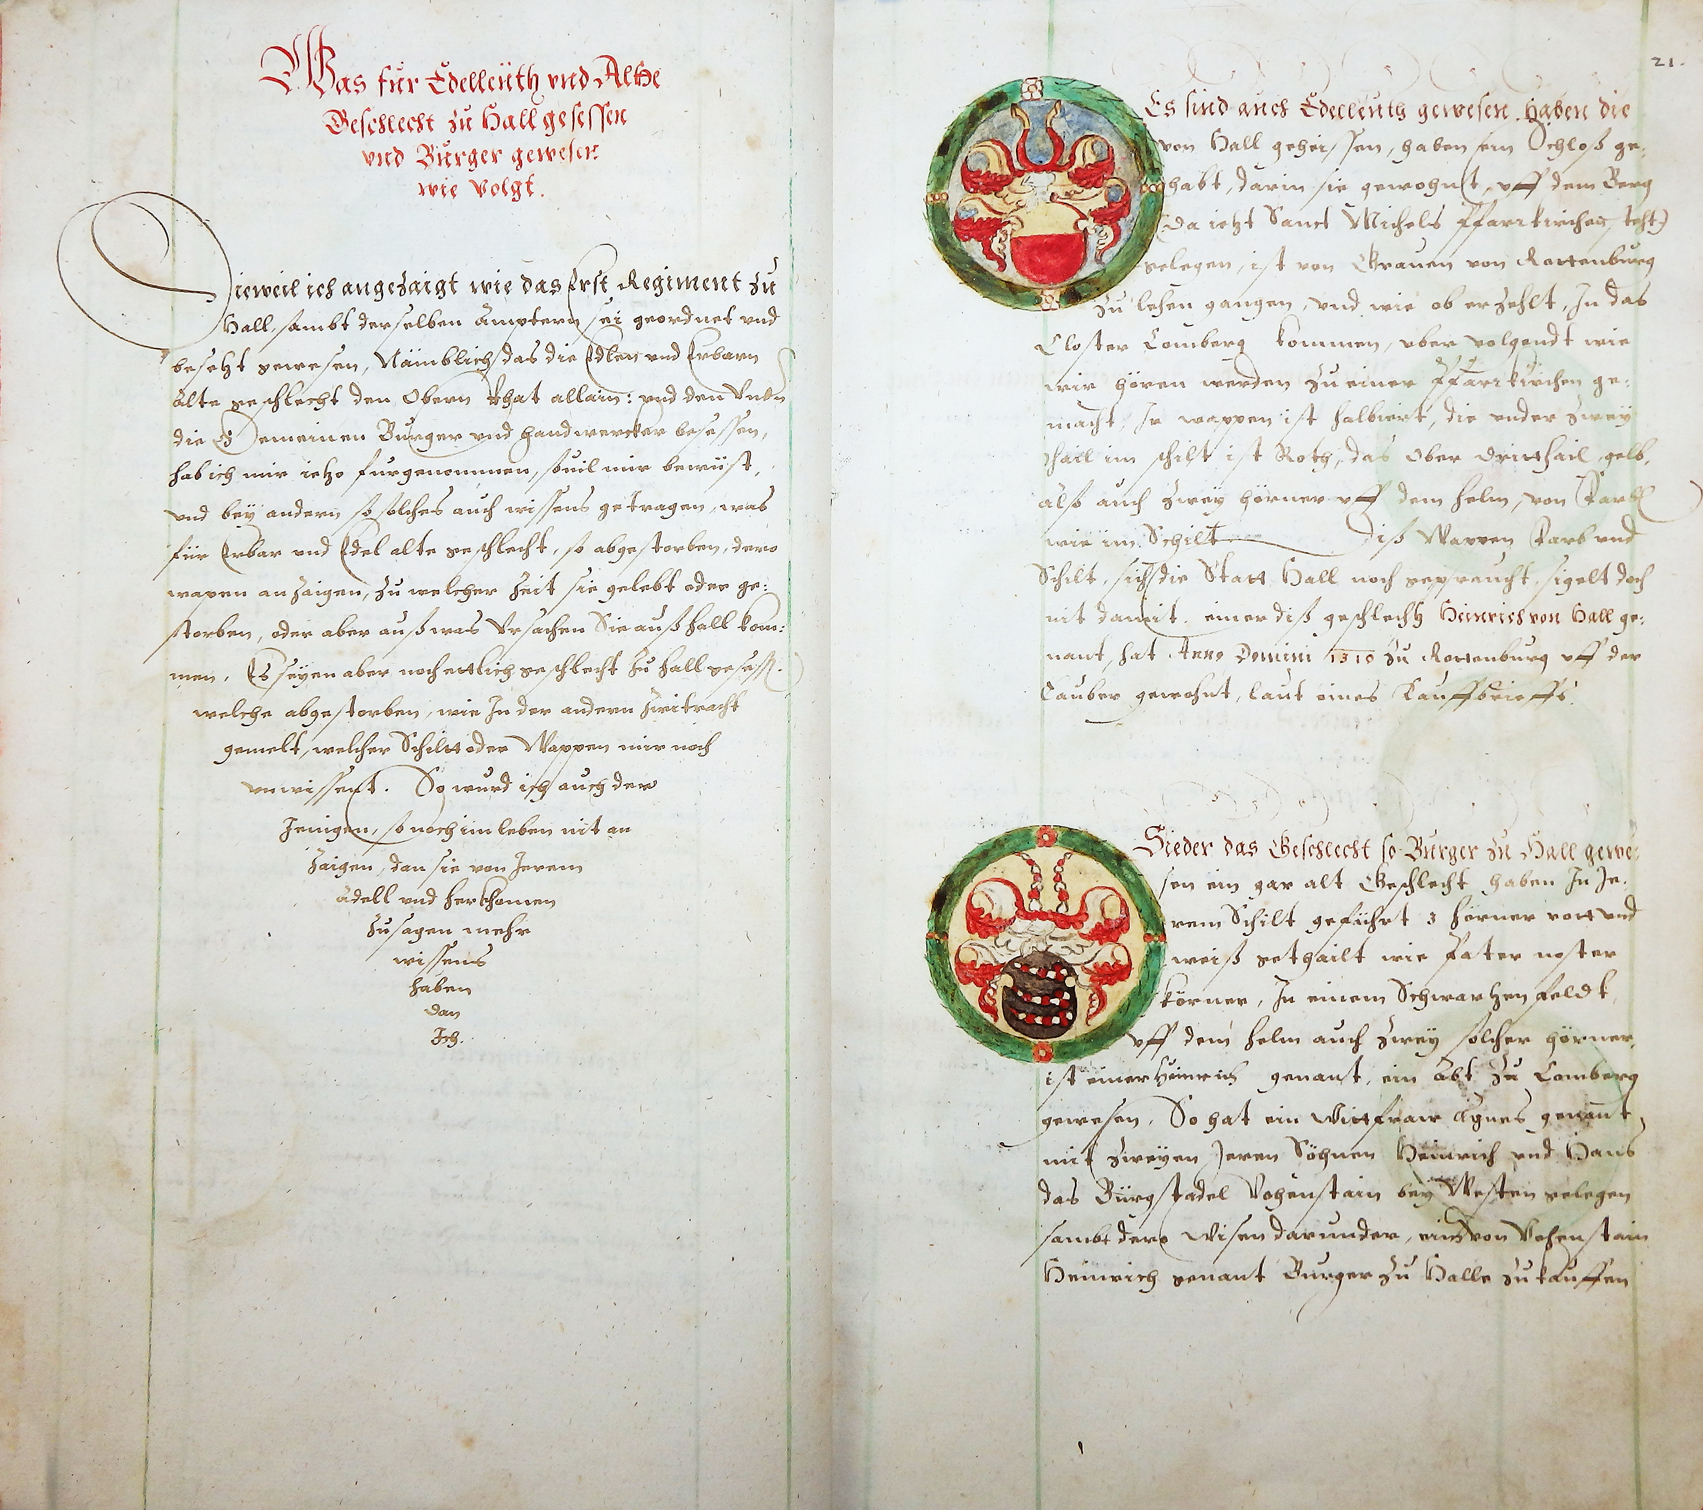 Was für Edelleüth vnd Alte
Geschlecht zu Hall gesessen
vnd Burger gewesen
wie volgt.
Dieweil ich angezaigt wie das Erst Regiment zu
Hall, sambt derselben ämptern sei geordnet vnd
besetzt gewesen, Nämblich das die Edlen vnd Erbarn
alte geschlecht den Obern Rhat allain: vnd den Vndn
die Gemeinen Burger vnd handwercker besessen,
hab ich mir ietzo furgenommen, souil mir bewüst,
vnd bey andern so solches auch wissens getragen, was
für Erbar vnd Edel alte geschlecht, so abgestorben, dero
wapen anzaigen, zu welcher zeit sie gelebt oder ge:
storben, oder aber auß was Vrsachen Sie auß Hall kom:
men. Es seyen aber noch ettlich geschlecht zu Hall gesess.
welche abgestorben, wie In der andern zwitracht
gemelt, welcher Schiltt oder Wappen mir noch
vnwissent. So wurd ich auch der
Jenigen, so noch im leben nit an
zaigen, dan sie von Jerem
adell vnd herkhomen
zusagen mehr
wissens
haben
dan
Ich.
21.
Es sind auch Edelleuth gewesen, haben die
von Hall geheissen, haben ein Schloß ge:
habt, darin sie gewohnt, vff dem Berg
(Da ietzt Sanct Michels Pfarrkirchen steht)
gelegen, ist von Grauen von Rottenburg
zu lehen gangen, vnd wie ob erzehlt, In das
Closter Comberg kommen, aber volgendt wie
wir hören werden zu einer Pfarrkirchen ge:
macht, Ir wappen ist halbiert, die vnder zwey
thail im schilt ist Roth, das Ober dritthail gelb,
alß auch zwey hörner vff dem helm, von Farb
wie im Schilt diß Wappen Farb vnd
Schilt, sich die Statt Hall noch gepraucht, sigelt doch
nit damit. einer diß geschlechtz Heinrich von Hall ge:
nant, hat Anno Domini 1310 zu Rottenburg vff der
Tauber gewohnt, laut eines Kauffbrieffs.
Sieder das Geschlecht so Burger zu Hall gewe:
sen ein gar alt Geschlecht haben In Je:
rem Schilt geführt 3 hörner rott vnd
weiß gethailt wie Pater noster
körner, In einem Schwartzen feldt,
vff dem helm auch zwey solcher hörner,
ist einer Heinrich genant, ein Abt zu Comberg
gewesen. So hat ein Wittfraw Agnes genant
mit zweyen Jeren Söhnen Heinrich vnd Hans
das Bürgstadel Vohenstain bey Westen gelegen
sambt dero Wisen darunder, von Vohenstain
Heinrich genant Burger zu Halle zu kauffen